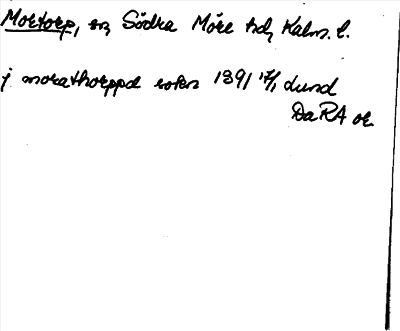 Mortorp, sn, Södra Möre hd, Kalm. l.
j morathorppa sokn 1391 17/1 Lund
DaRA or.